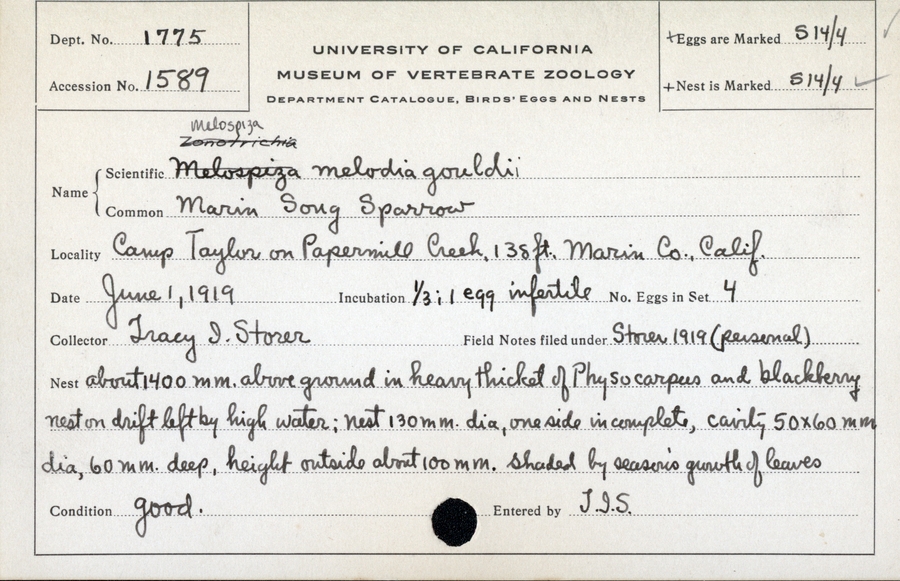 Dept. No. 1775
Accession No. 1589
UNIVERSITY OF CALIFORNIA
MUSEUM OF VERTEBRATE ZOOLOGY
DEPARTMENT CATALOGUE, BIRDS' EGGS AND NESTS
+Eggs are Marked S14/4
+Nest is Marked S14/4
Melospiza
Zonotrichia
Name
Scientific Melospiza melodia gouldii
Common Marin Song Sparrow
Locality Camp Taylor on Papermill Creek, 138 ft. Marin Co., Calif.
Date June 1, 1919 Incubation 1/3; 1 egg infertile No. Eggs in Set 4
Collector Tracy I. Storer Field Notes filed under Storer 1919 (personal)
Nest about 1400 mm. above ground in heavy thicket of Physocarpus and blackberry
nest on drift left by high water; nest 130 mm. dia, one side incomplete, cavity 50x60 mm
dia, 60 mm. deep, height outside about 100 mm. Shaded by season's growth of leaves
Condition good. Entered by T.I.S.